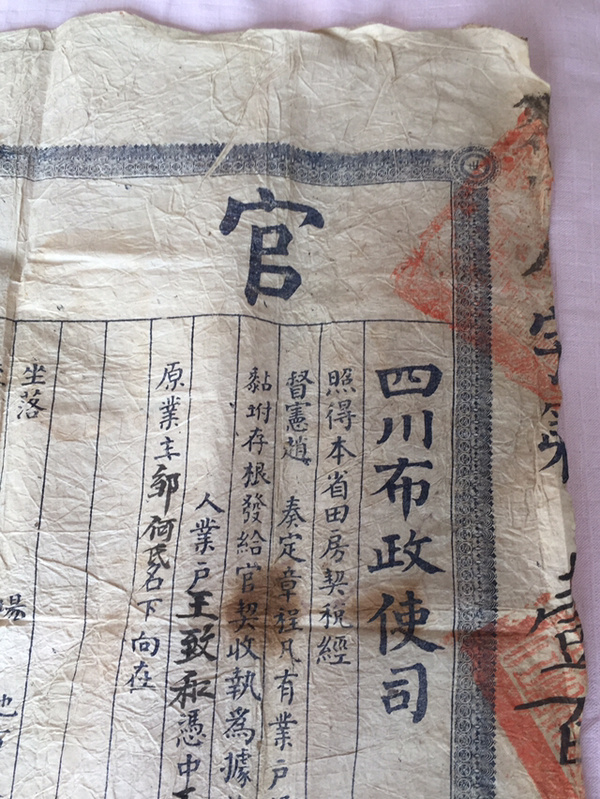 字第 壹百
官
四川布政使司
照得本省田房契稅經
督憲趙 奏定章程凡有業戶
黏坿存根發給官契收執爲據
人業戶王致和憑中
原業主鄒何氏名下向在
坐落
場 地